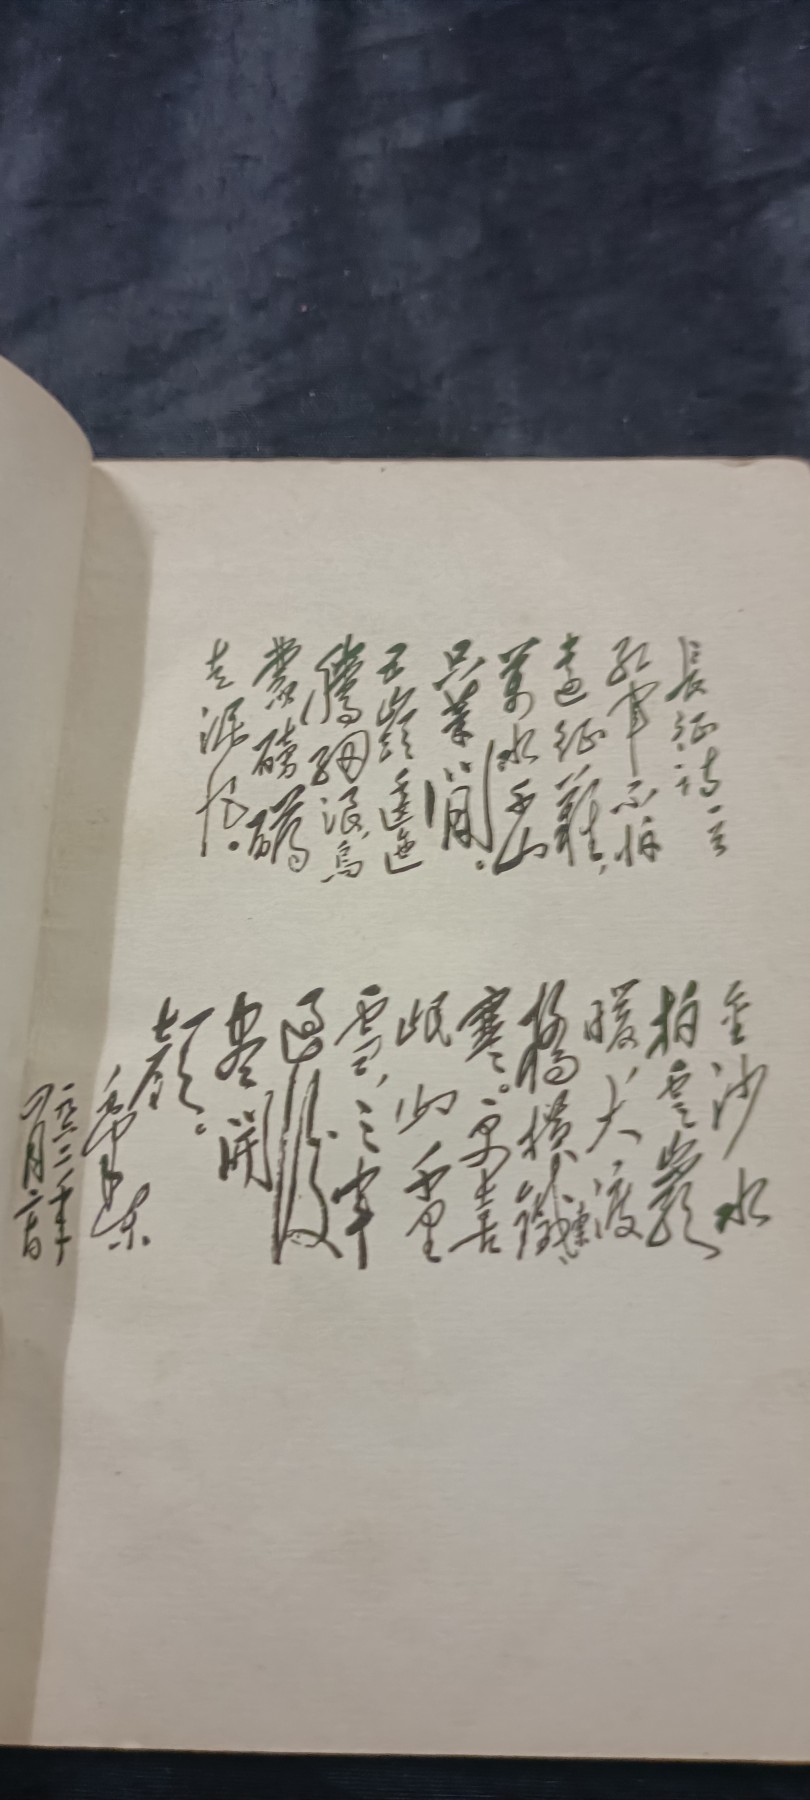 長征詩一首
紅軍不怕
遠征難,
萬水千山
只等閒。
五嶺逶迤
騰細浪,烏
蒙磅礴
走泥丸。
金沙水
拍雲巖
暖大渡
橋橫鐵索
寒。更喜
岷山千里
雪,三軍
過後
盡開
顏。
毛澤東
一九六二年
四月二十日